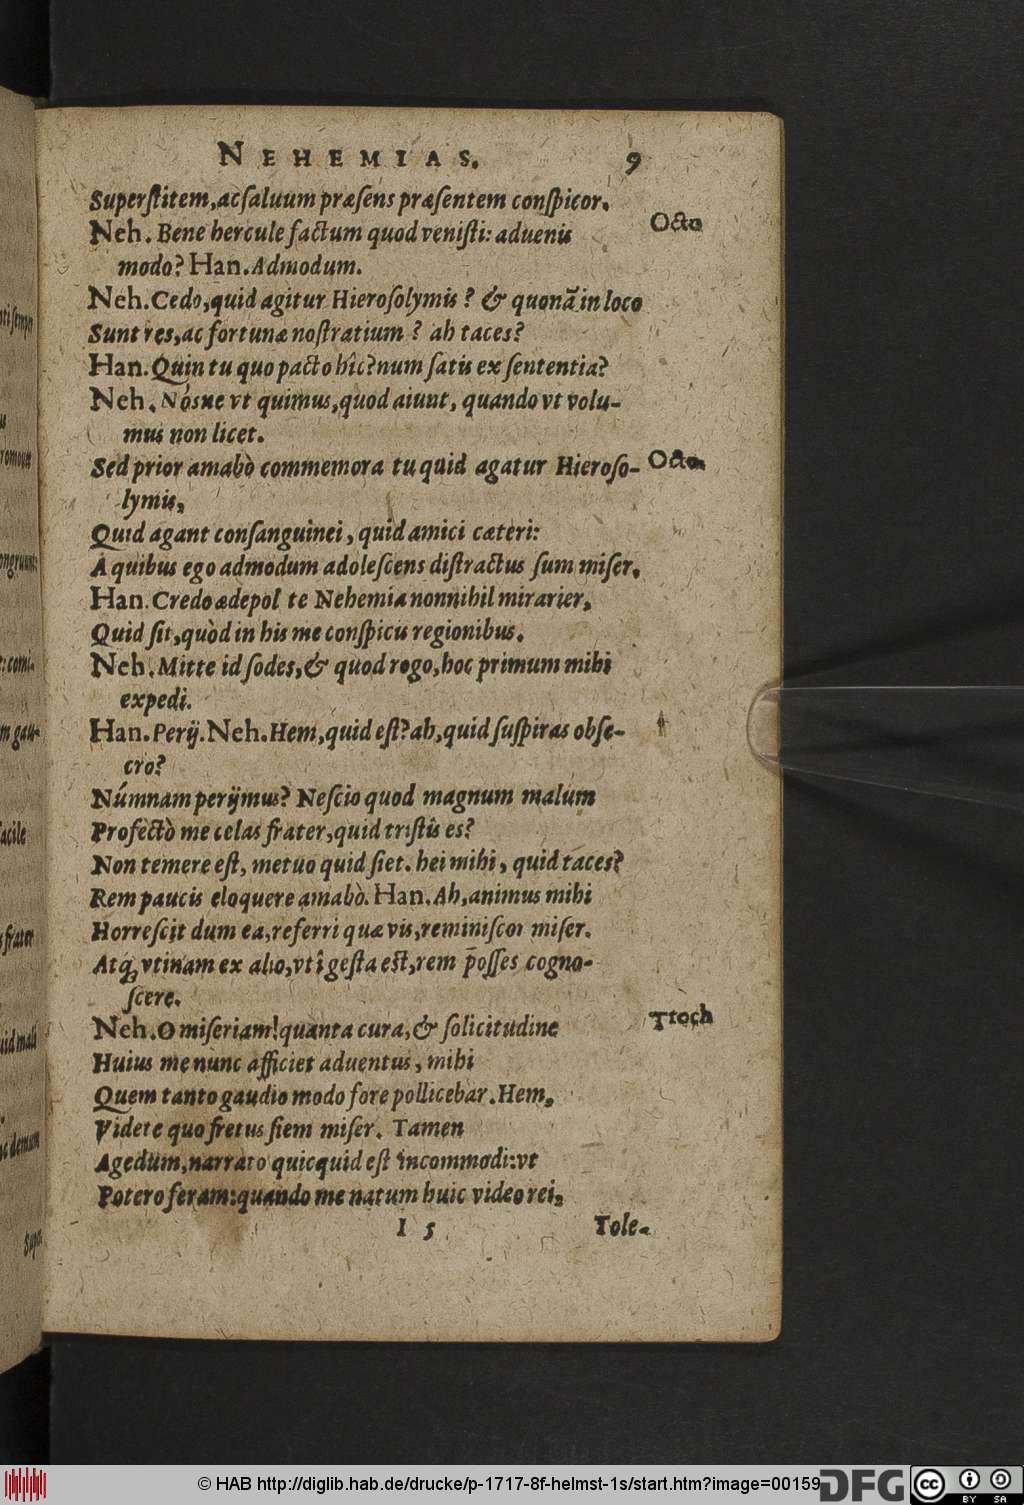 NEHEMIAS. 9
Superſtitem, ac ſaluum præſens præſentem conſpicor.
Neh. Bene hercule factum quod veniſti: aduenis Octo
modo? Han. Admodum.
Neh. Cedo, quid agitur Hieroſolymis? & quonā in loco
Sunt res, ac fortunæ noſtratium? ah taces?
Han. Quin tu quo pacto hîc? num ſatis ex ſententia?
Neh. Nósne vt quimus, quod aiunt, quando vt volu-
mus non licet.
Sed prior amabò commemora tu quid agatur Hieroſo- Octo.
lymis,
Quid agant conſanguinei, quid amici cæteri:
A quibus ego admodum adoleſcens diſtractus ſum miſer.
Han. Credo ædepol te Nehemia nonnihil mirarier,
Quid ſit, quòd in his me conſpicis regionibus.
Neh. Mitte id ſodes, & quod rogo, hoc primum mihi
expedi.
Han. Perij. Neh. Hem, quid eſt? ah, quid ſuſpiras obſe-
cro?
Númnam perijmus? Neſcio quod magnum malum
Profectò me celas frater, quid triſtis es?
Non temere eſt, metuo quid ſiet. hei mihi, quid taces?
Rem paucis eloquere amabò. Han. Ah, animus mihi
Horreſcit dum ea, referri quæ vis, reminiſcor miſer.
Atq; vtinam ex alio, vti geſta eſt, rem poſſes cogno-
ſcere.
Neh. O miſeriam! quanta cura, & ſolicitudine Troch
Huius me nunc afficiet aduentus, mihi
Quem tanto gaudio modo fore pollicebar. Hem,
Videte quo fretus ſiem miſer. Tamen
Agedum, narrato quicquid eſt incommodi: vt
Potero feram: quando me natum huic video rei,
I 5 Tole-
© HAB http://diglib.hab.de/drucke/p-1717-8f-helmst-1s/start.htm?image=00159
DFG
cc BY SA